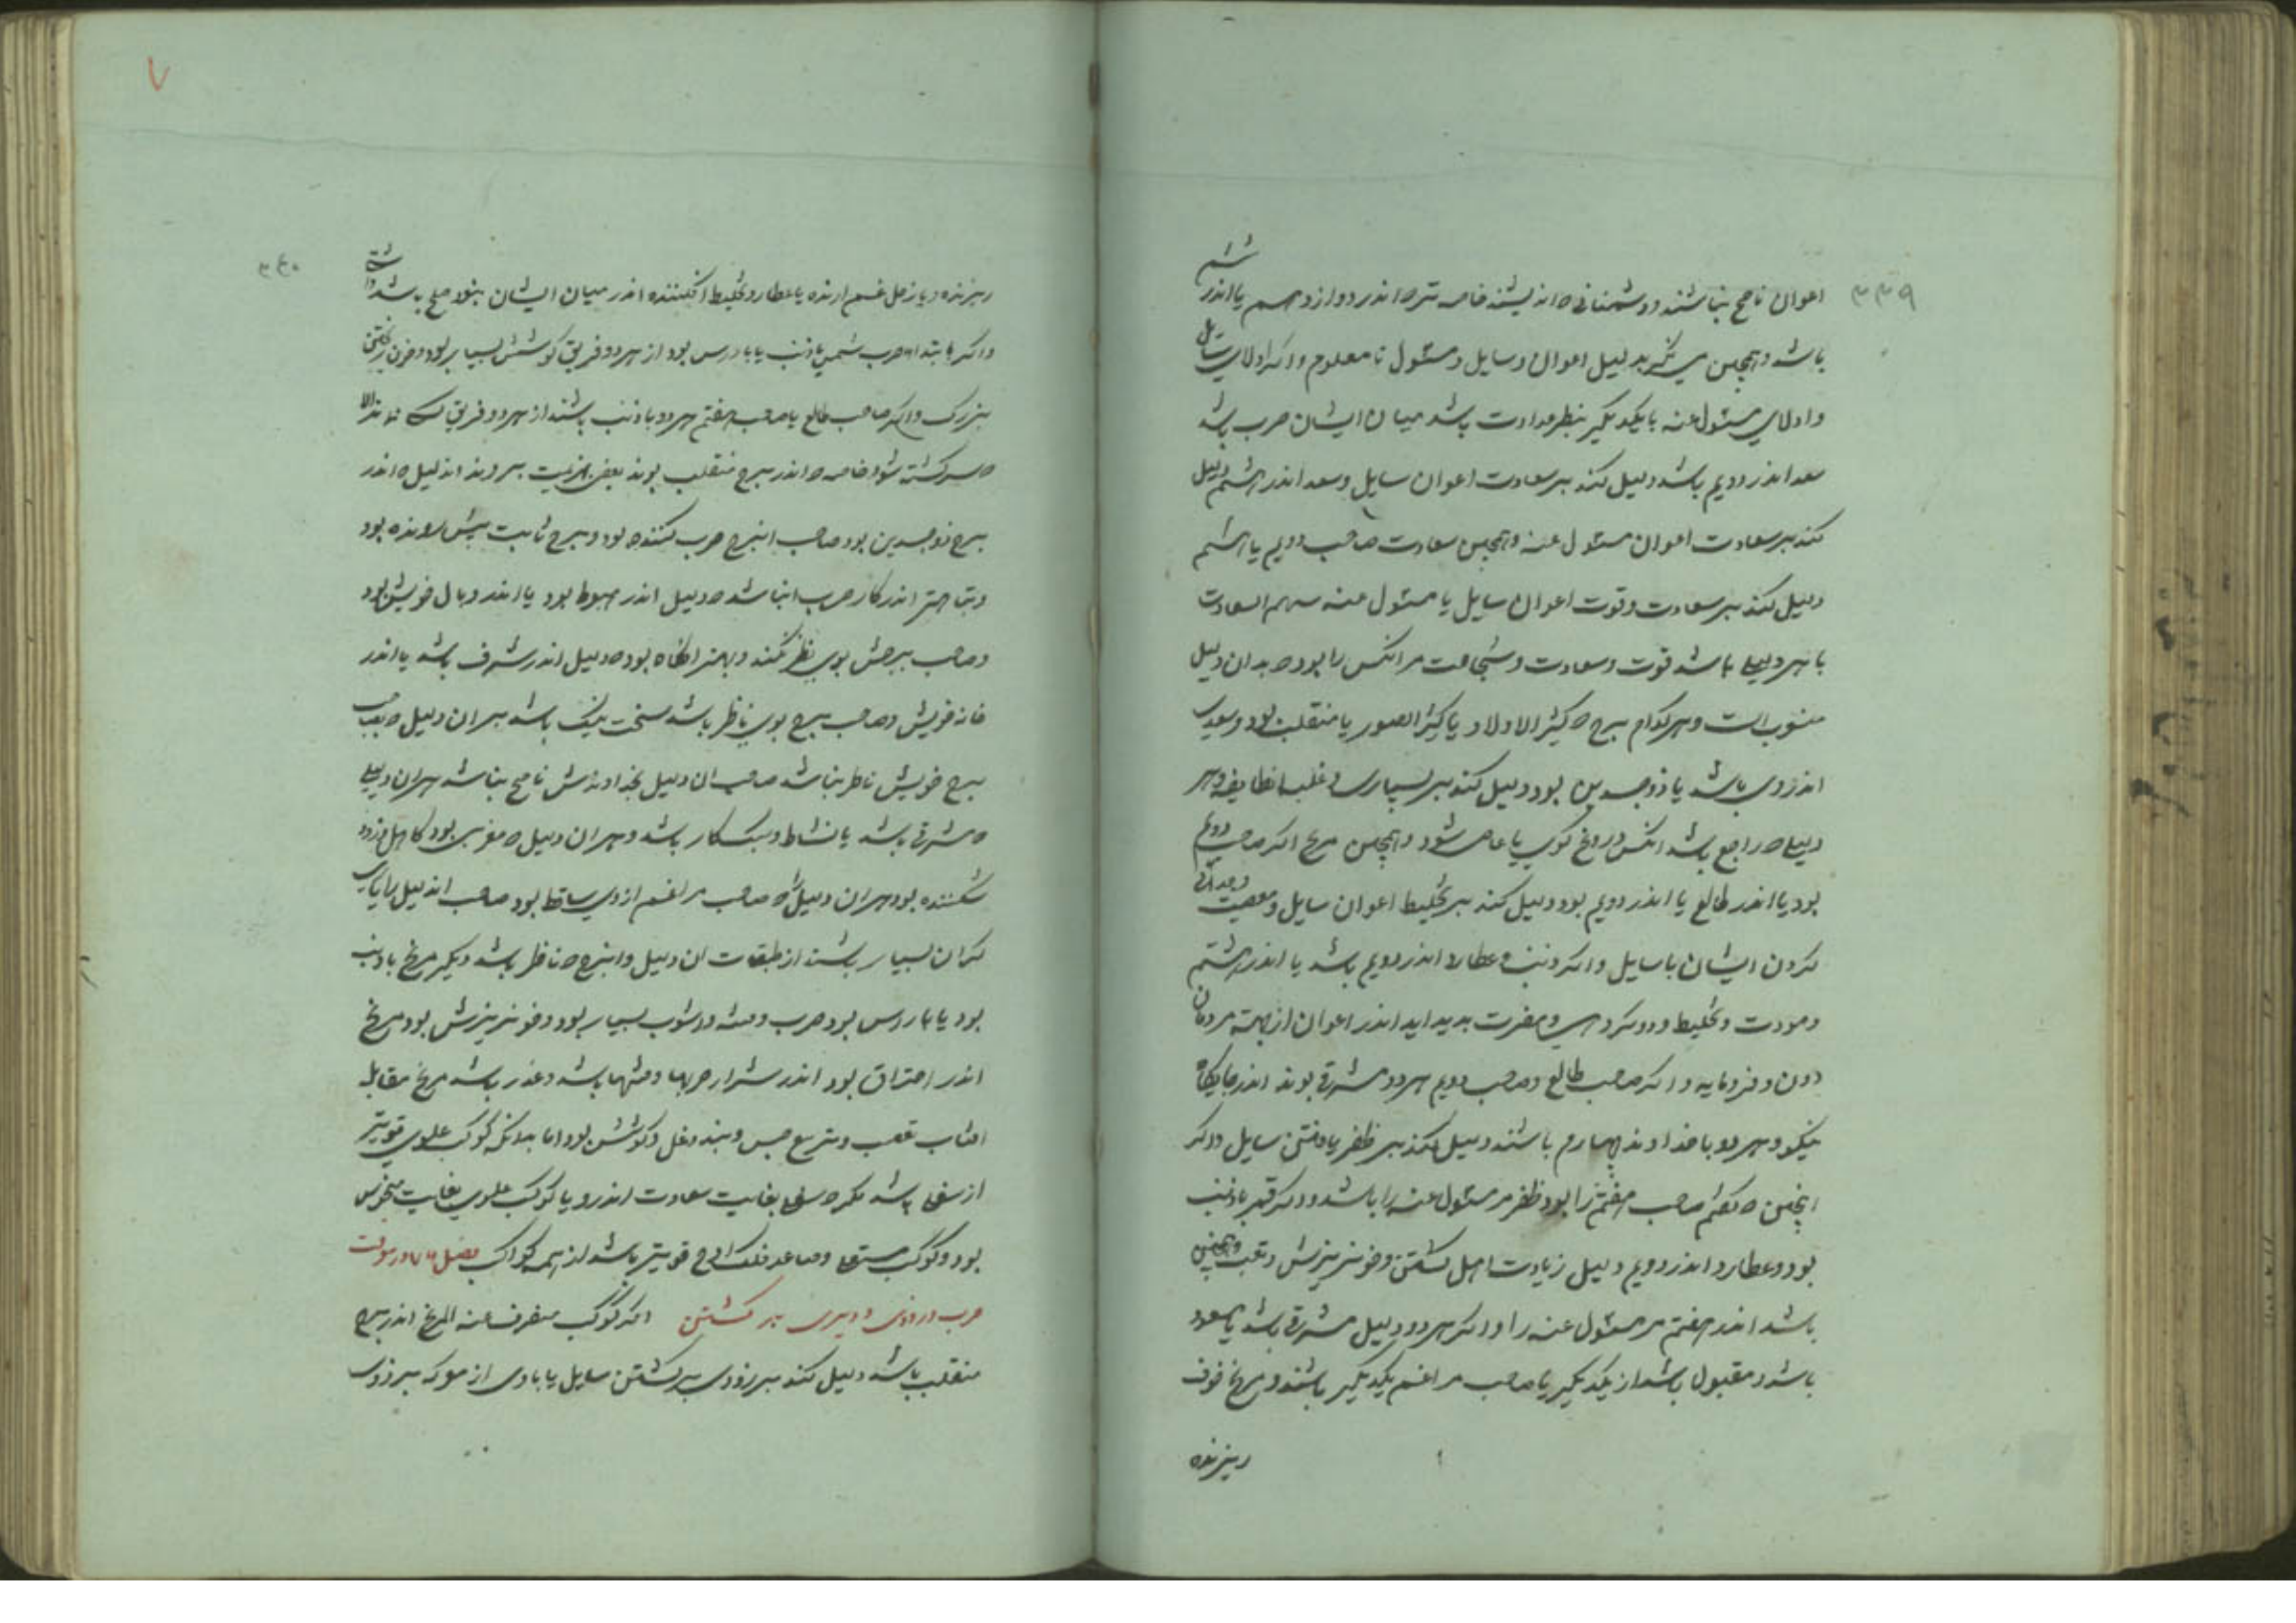 ۳۳۹
اعوان ناصح نباشند و دشمنانی اندیشند خاصه اندر دوازدهم یا اندر ششم
باشد و همچنین می نگر بدلیل اعوان و سایل و مسئول تا معلوم و اکر اولای سایل
و اولای مسئول عنه با یکدیکر بنظر عداوت باشد میان ایشان حرب باشد
سعد اندر دویم باشد دلیل کند بر سعادت اعوان سایل و سعد اندر هشتم دلیل
کند بر سعادت اعوان مسئول عنه و همچنین سعادت صاحب دویم یا هشتم
دلیل کند بر سعادت و قوت اعوان سایل یا مسئول عنه سهم السعادت
با هر دلیلی باشد قوت و سعادت و شجاعت مر انکس را بود که بدان دلیل
منسوب است و هر کدام برج که کثیر الاولاد یا کثیر الصور یا منقلب بود و سعدی
اندر وی باشد یا ذوجسدین بود دلیل کند بر بسیاری و غلبه انطایفه و هر
دلیلی که راجع باشد انکس دروغ کوی یا عاصی شود و همچنین مریخ اکر صاحب دویم
بود یا اندر طالع یا اندر دویم بود دلیل کند بر تخلیط اعوان سایل و معصیت
کردن ایشان با سایل و اکر ذنب و عطارد اندر دویم باشد یا اندر هشتم
و تخلیط و مضرت پدید اید اندر اعوان از جهت مردمان
دون و فرومایه و اکر صاحب طالع و صاحب دویم هر دو مشرقی بوند اندر جایکاه
نیکو و هر دو با خداوند چهارم باشند دلیل کند بر ظفر یافتن سایل و اکر
اینچنین که کفتم صاحب هفتم را بود ظفر مر مسئول عنه را باشد و اکر قمر با ذنب
بود و عطارد اندر دویم دلیل زیادت اهل کشتن و خونریزش و تعب و همچنین
باشد اندر هفتم مر مسئول عنه را و اکر هر دو دلیل مشرقی باشد یا مسعود
باشد و مقبول باشد از یکدیکر یا صاحب مراغم یکدیکر باشند و مریخ خون
ریزنده
۳۴۰
ریزنده و یا زحل غم ارنده یا عطارد تخلیط افکننده اندر میان ایشان بنود صلح باشد اشتی
و اکر با بتداء حرب شمس با ذنب یا با راس بود از هر دو فریق کوشش بسیار بود و خون ریختن
بزرک و اکر صاحب طالع یا صاحب هفتم هر دو با ذنب باشند از هر دو فریق کس نماند الا
که کشته شود خاصه که اندر برج منقلب بوند بعضی هزیمت بروند اندلیل که اندر
برج ذوجسدین بود صاحب انبرج حرب کننده بود و برج ثابت پیش رونده بود
و تباهتر اندر کار حرب انباشد که دلیل اندر هبوط بود یا اندر وبال خویش بود
و صاحب برجش بوی نظر نکند و بهتر انکاه بود که دلیل اندر شرف باشد یا اندر
خانه خویش و صاحب برج بوی ناظر باشد سخت نیک باشد هر ان دلیل که بصاحب
برج خویش ناظر نباشد صاحب ان دلیل بخداوندش ناصح نباشد هر ان دلیلی
که مشرقی باشد با نشاط و سبکسار باشد و هر ان دلیل که مغربی بود کاهل و زود
شکننده بود هر ان دلیل را که صاحب مراغم از وی ساقط بود صاحب اندلیل را یاری
کران بسیار باشند از طبقات ان دلیل و انبرج که ناظر باشد و دیکر مریخ با ذنب
بود یا با راس بود حرب و فتنه و اشوب بسیار بود و خونریزش بود مریخ
اندر احتراق بود اندر شرار حربها و فتنها باشد و غدر باشد مریخ مقابله
افتاب تعب و تربیع حبس و بند و غل و کوشش بود اما بدانکه کوکب علوی قویتر
از سفلی باشد مکر که سفلی بغایت سعادت اندر و یا کوکب علوی بغایت منحوس
بود و کوکب مستعلی و صاعد فلک اوج قویتر باشد از همه کواکب فصل در سرعت
حرب در زودی و دیری بر کشتن اکر کوکب منصرف عنه المریخ اندر برج
منقلب باشد دلیل کند بر زودی بر کشتن سایل یا بادی از معرکه بر زودی
۷